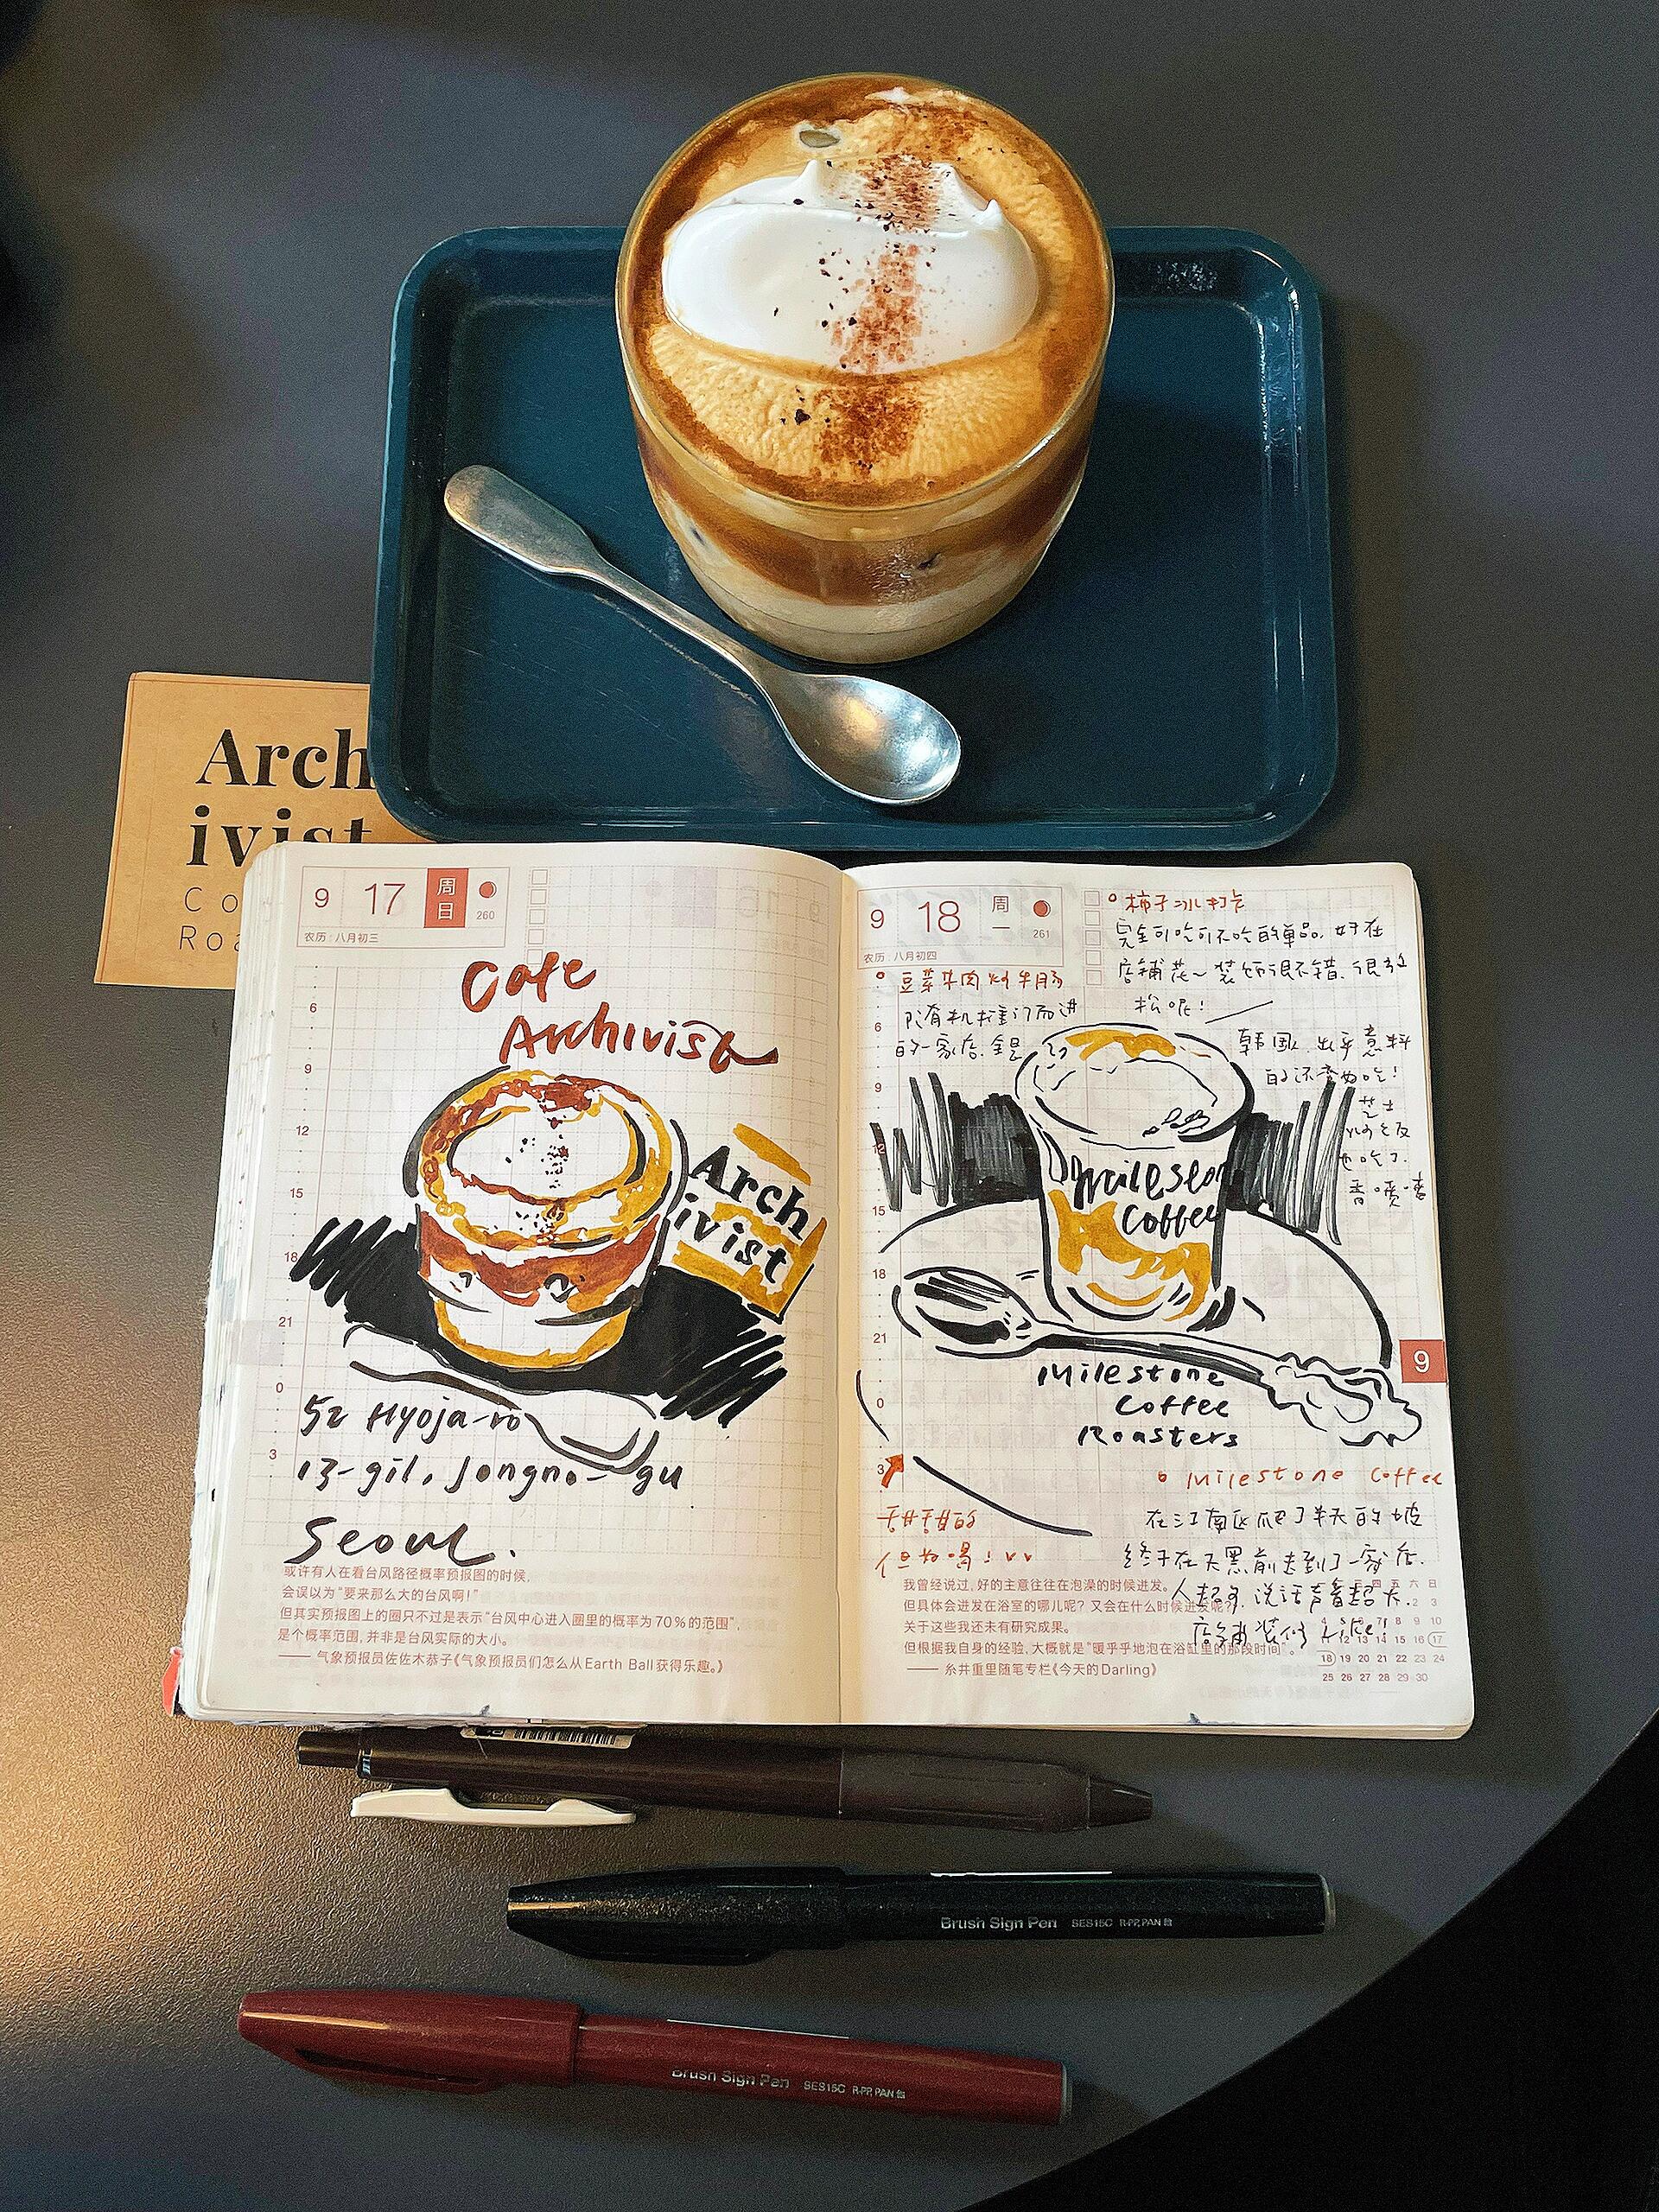 Arch
ivist
Co
Roa
9 17 周日 260
农历 八月初三
Cafe
Archivist
6
9
12
15
18
21
0
3
Arch
ivist
52 Hyoja-ro
13-gil, Jongno-gu
Seoul.
或许有人在看台风路径概率预报图的时候，
会误以为“要来那么大的台风啊！”
但其实预报图上的圈只不过是表示“台风中心进入圈里的概率为70%的范围”，
是个概率范围，并非是台风实际的大小。
—— 气象预报员佐佐木恭子《气象预报员们怎么从Earth Ball获得乐趣。》
9 18 周一 261
农历 八月初四
柿子冰打卡
完全可吃可不吃的单品. 好在
店铺花~装饰很不错. 很放
松呢!
豆芽牛肉炒牛肠
随机推门而进
的一家店. 全是
韩国人. 出乎意料
的还蛮好吃!
芝士
炒饭
也吃了.
香喷喷
6
9
12
15
18
21
0
3
Milestone
Coffee
9
Milestone
Coffee
Roasters
Milestone Coffee
在江南区爬了半天的坡
终于在天黑前走到了一家店.
人超多, 说话声音超大.
店铺装修 Like!
但好喝!
我曾经说过，好的主意往往在泡澡的时候迸发。
但具体会迸发在浴室的哪儿呢？又会在什么时候迸发呢？
关于这些我还未有研究成果。
但根据我自身的经验，大概就是“暖乎乎地泡在浴缸里的那段时间”。
—— 糸井重里随笔专栏《今天的Darling》
四 五 六 日
2 3
4 5 6 7 8 9 10
11 12 13 14 15 16 17
18 19 20 21 22 23 24
25 26 27 28 29 30
Brush Sign Pen SES15C R-PP, PAN
Brush Sign Pen SES15C R-PP, PAN